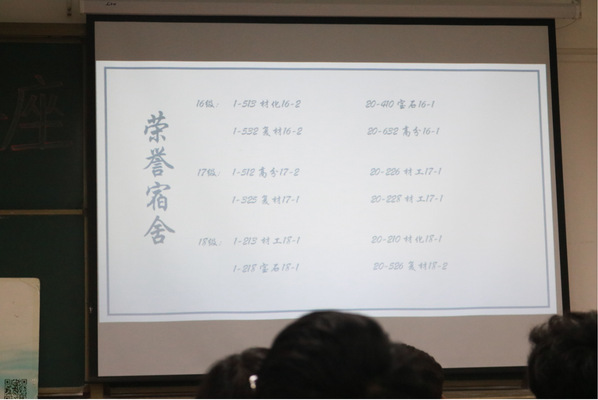 座
荣誉宿舍
16级: 1-513 材化16-2 20-410 宝石16-1
1-532 复材16-2 20-632 高分16-1
17级: 1-512 高分17-2 20-226 材工17-1
1-325 复材17-1 20-228 材工17-1
18级: 1-213 材工18-1 20-210 材化18-1
1-218 宝石18-1 20-526 复材18-2